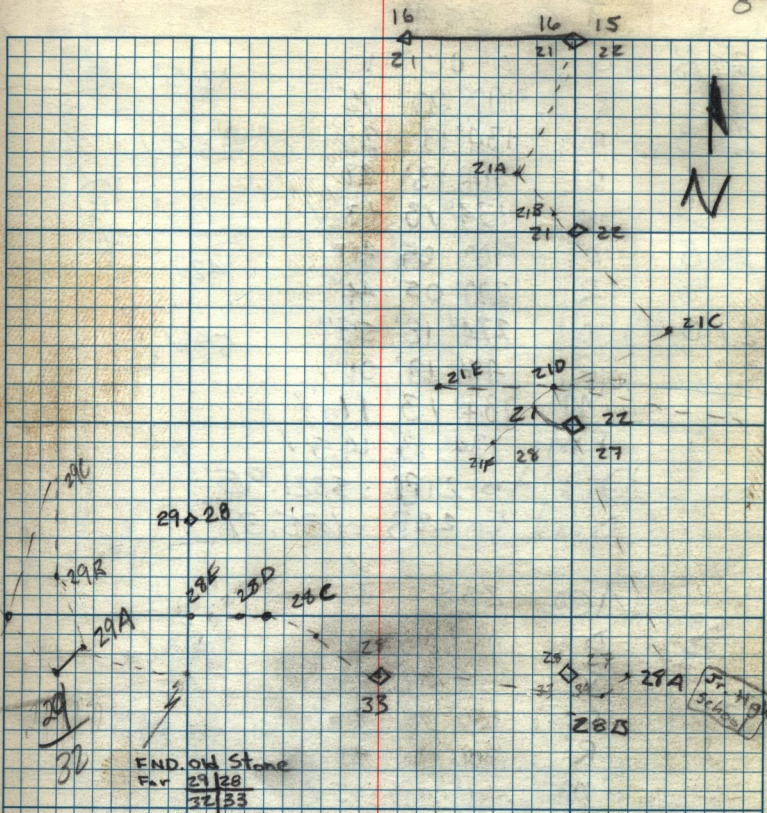 16 16 15
21 21 22
N
21A
21B
21 22
21C
21E 21D
21 22
21F 28 27
29C
29 28
29B
28E 28D 28C
29A
28 28 27
28A
33 33 34
28B
Jr High
School
29
32
FND. Old Stone
For 29 28
32 33